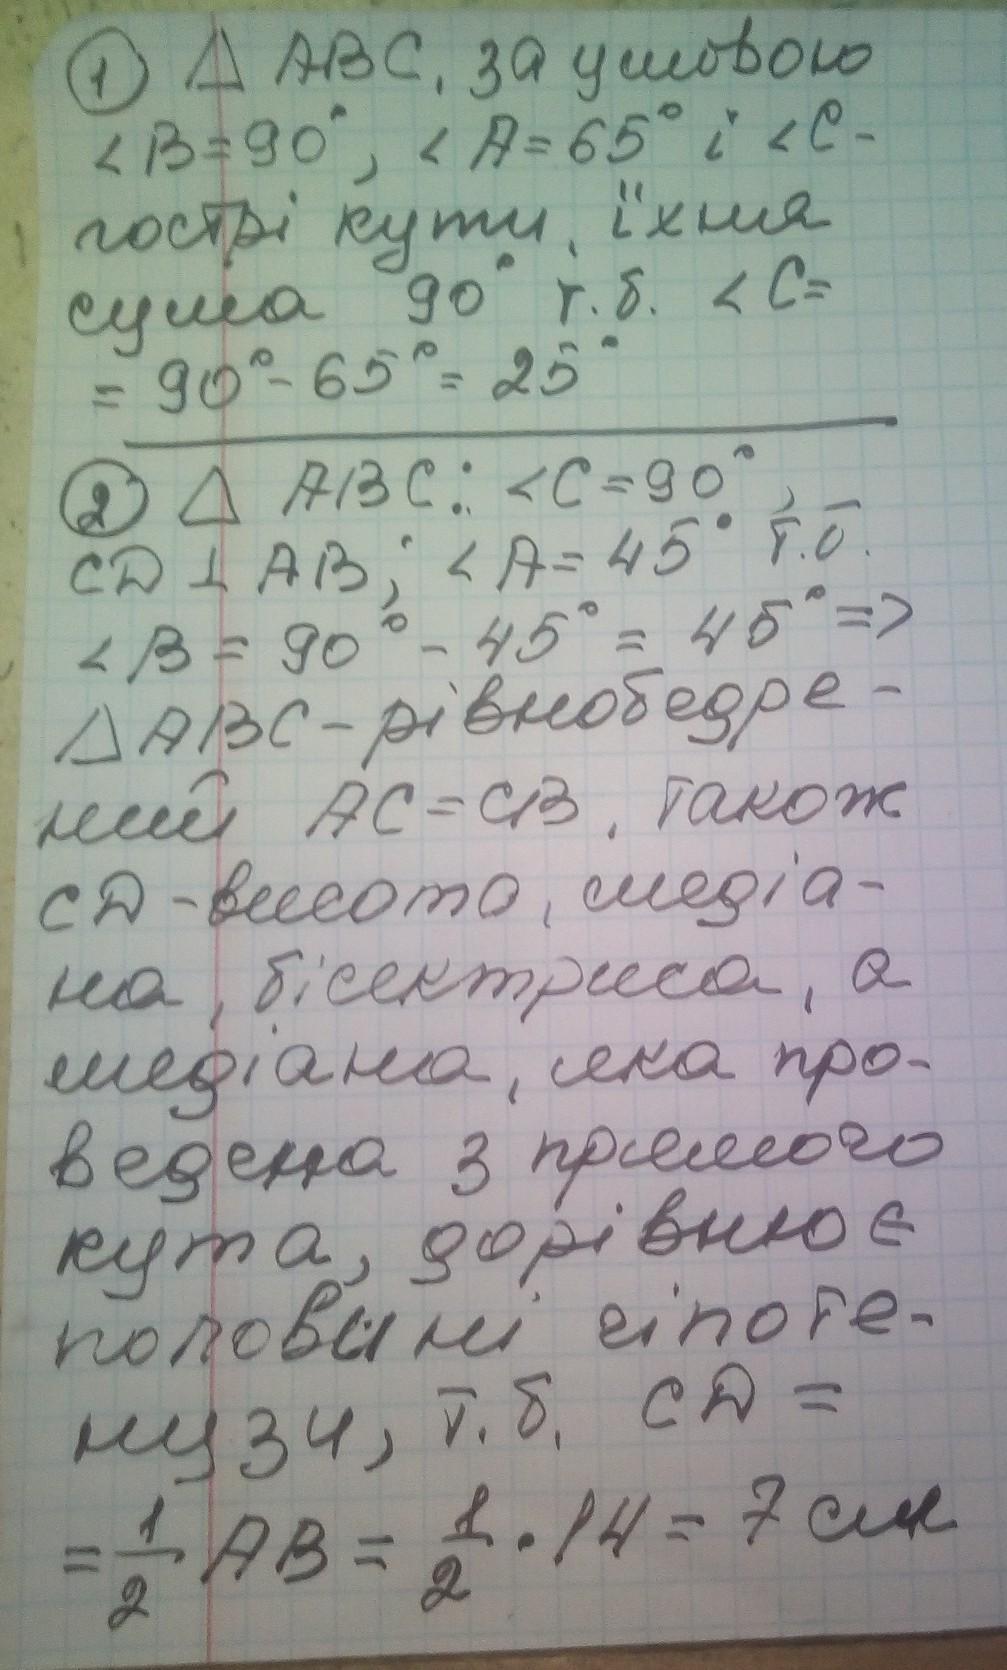 ① △ ABC, за умовою
∠B=90°, ∠A=65° і ∠C-
гострі кути, їхня
сума 90° т.б. ∠C=
= 90°- 65°= 25°
② △ ABC: ∠C=90°,
CD ⊥ AB; ∠A= 45° т.б.
∠B = 90° - 45° = 45° =>
△ABC - рівнобедре-
ний AC=CB, також
CD - висота, медіа-
на, бісектриса, а
медіана, яка про-
ведена з прямого
кута, дорівнює
половині гіпоте-
нузи, т.б. CD =
= 1/2 AB = 1/2 · 14 = 7 см